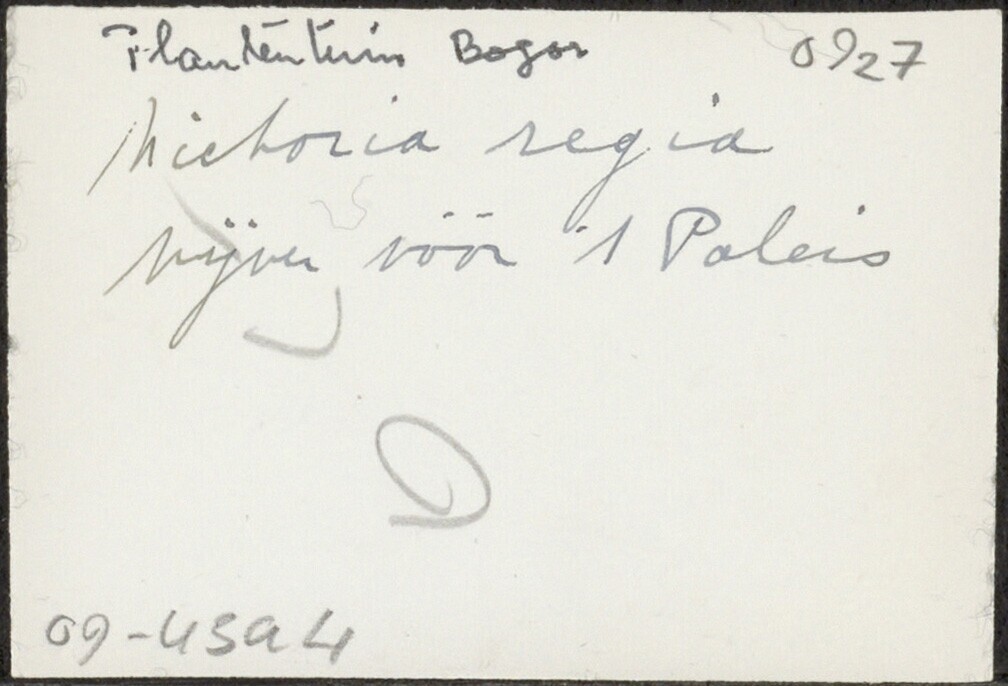 Plantentuin Bogor 0927
Victoria regia
vijver vóór 't Paleis
D
09-USA4